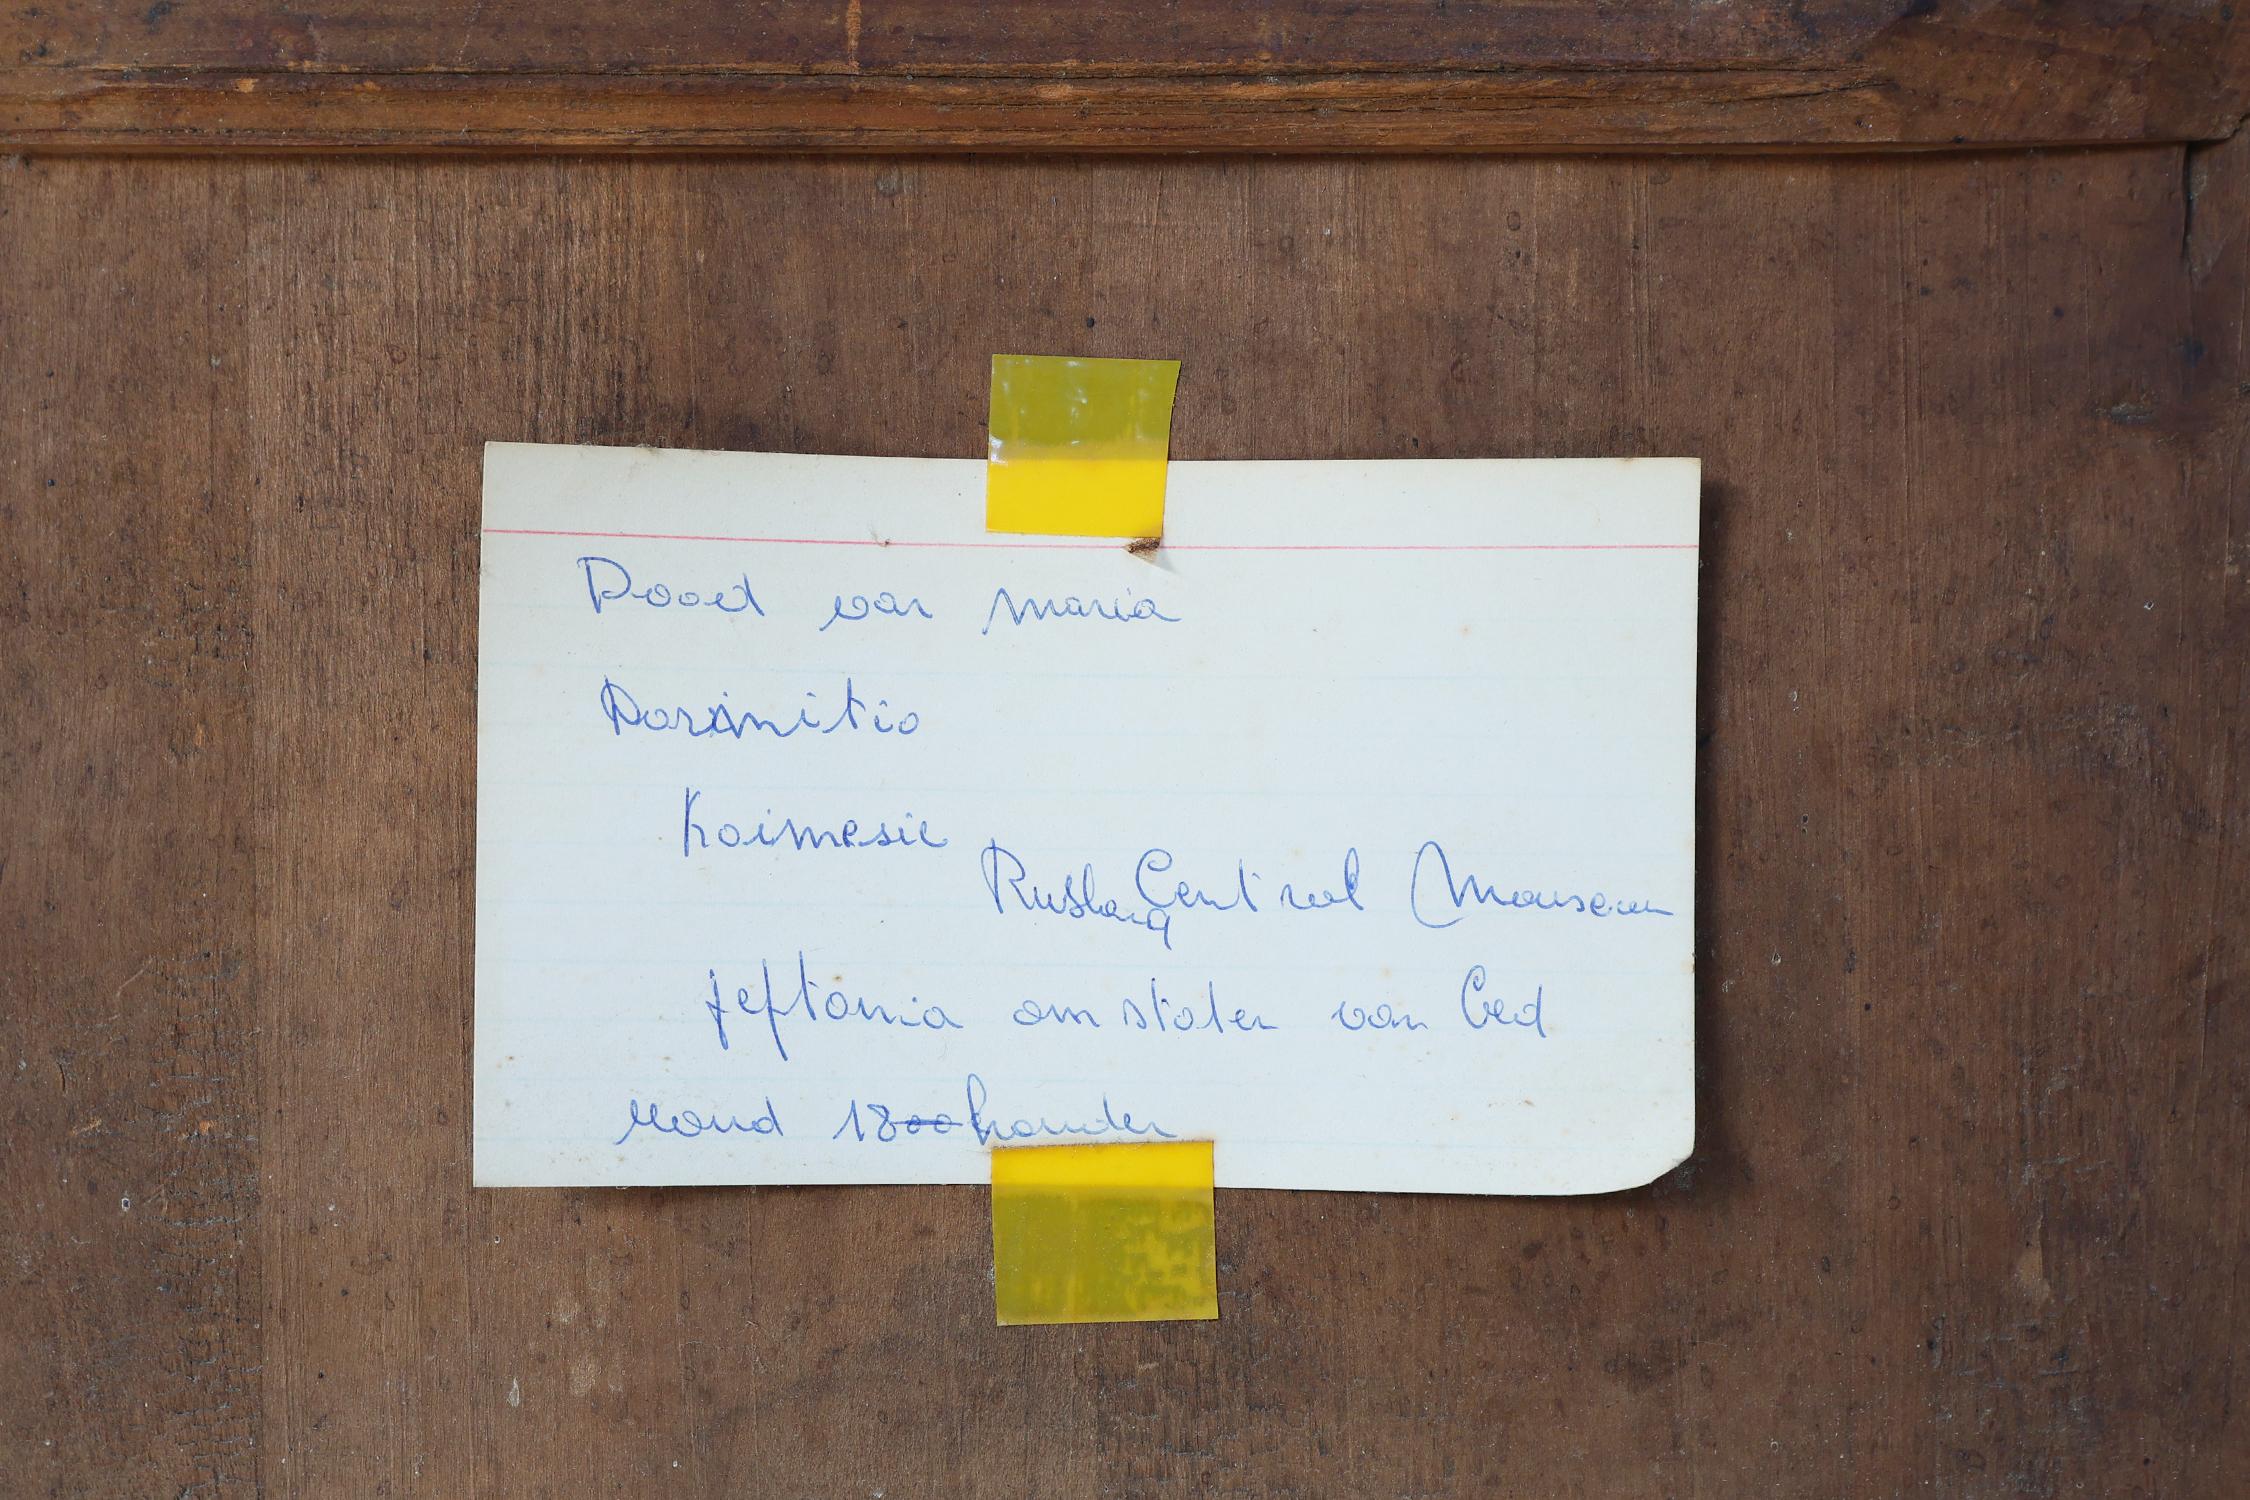 Dood van Maria
Dorimitio
Koimesie
Rusland Centraal Museum
jeftonia omstoten van Ced
rond 18 honder